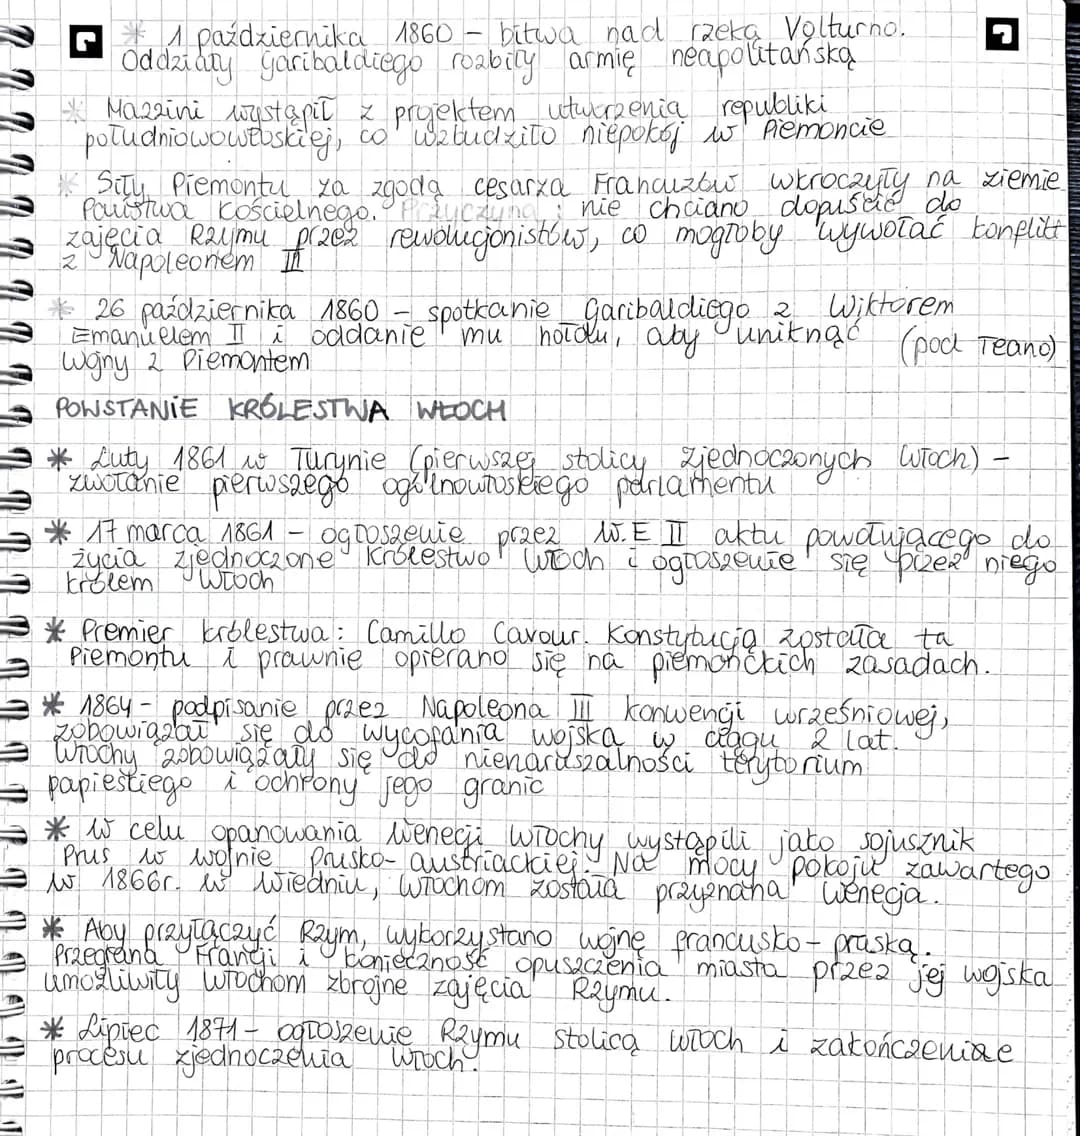 * 1 października 1860 – bitwa nad rzeką Volturno.
Oddziały Garibaldiego rozbiły armię neapolitańską
* Mazzini wystąpił z projektem utworzenia republiki
południowowłoskiej, co wzbudziło niepokój w Piemoncie
* Siły Piemontu za zgodą cesarza Francuzów wkroczyły na ziemie
Państwa Kościelnego. Przyczyna: nie chciano dopuścić do
zajęcia Rzymu przez rewolucjonistów, co mogłoby wywołać konflikt
z Napoleonem III
* 26 października 1860 – spotkanie Garibaldiego z Wiktorem
Emanuelem II i oddanie mu hołdu, aby uniknąć (pod Teano)
wojny z Piemontem
POWSTANIE KRÓLESTWA WŁOCH
* Luty 1861 w Turynie (pierwszej stolicy zjednoczonych Włoch) –
zwołanie pierwszego ogólnowłoskiego parlamentu
* 17 marca 1861 – ogłoszenie przez W.E II aktu powołującego do
życia zjednoczone Królestwo Włoch i ogłoszenie się przez niego
królem Włoch
* Premier królestwa: Camillo Cavour. Konstytucją została ta
Piemontu i prawnie opierano się na piemonckich zasadach.
* 1864 – podpisanie przez Napoleona III konwencji wrześniowej,
zobowiązał się do wycofania wojska w ciągu 2 lat.
Włochy zobowiązały się do nienaruszalności terytorium
papieskiego i ochrony jego granic
* W celu opanowania Wenecji Włochy wystąpili jako sojusznik
Prus w wojnie prusko-austriackiej. Na mocy pokoju zawartego
w 1866r. w Wiedniu, Włochom została przyznana Wenecja.
* Aby przyłączyć Rzym, wykorzystano wojnę francusko-pruską.
Przegrana Francji i konieczność opuszczenia miasta przez jej wojska
umożliwiły Włochom zbrojne zajęcia Rzymu.
* Lipiec 1871 – ogłoszenie Rzymu stolicą Włoch i zakończenie
procesu zjednoczenia Włoch.